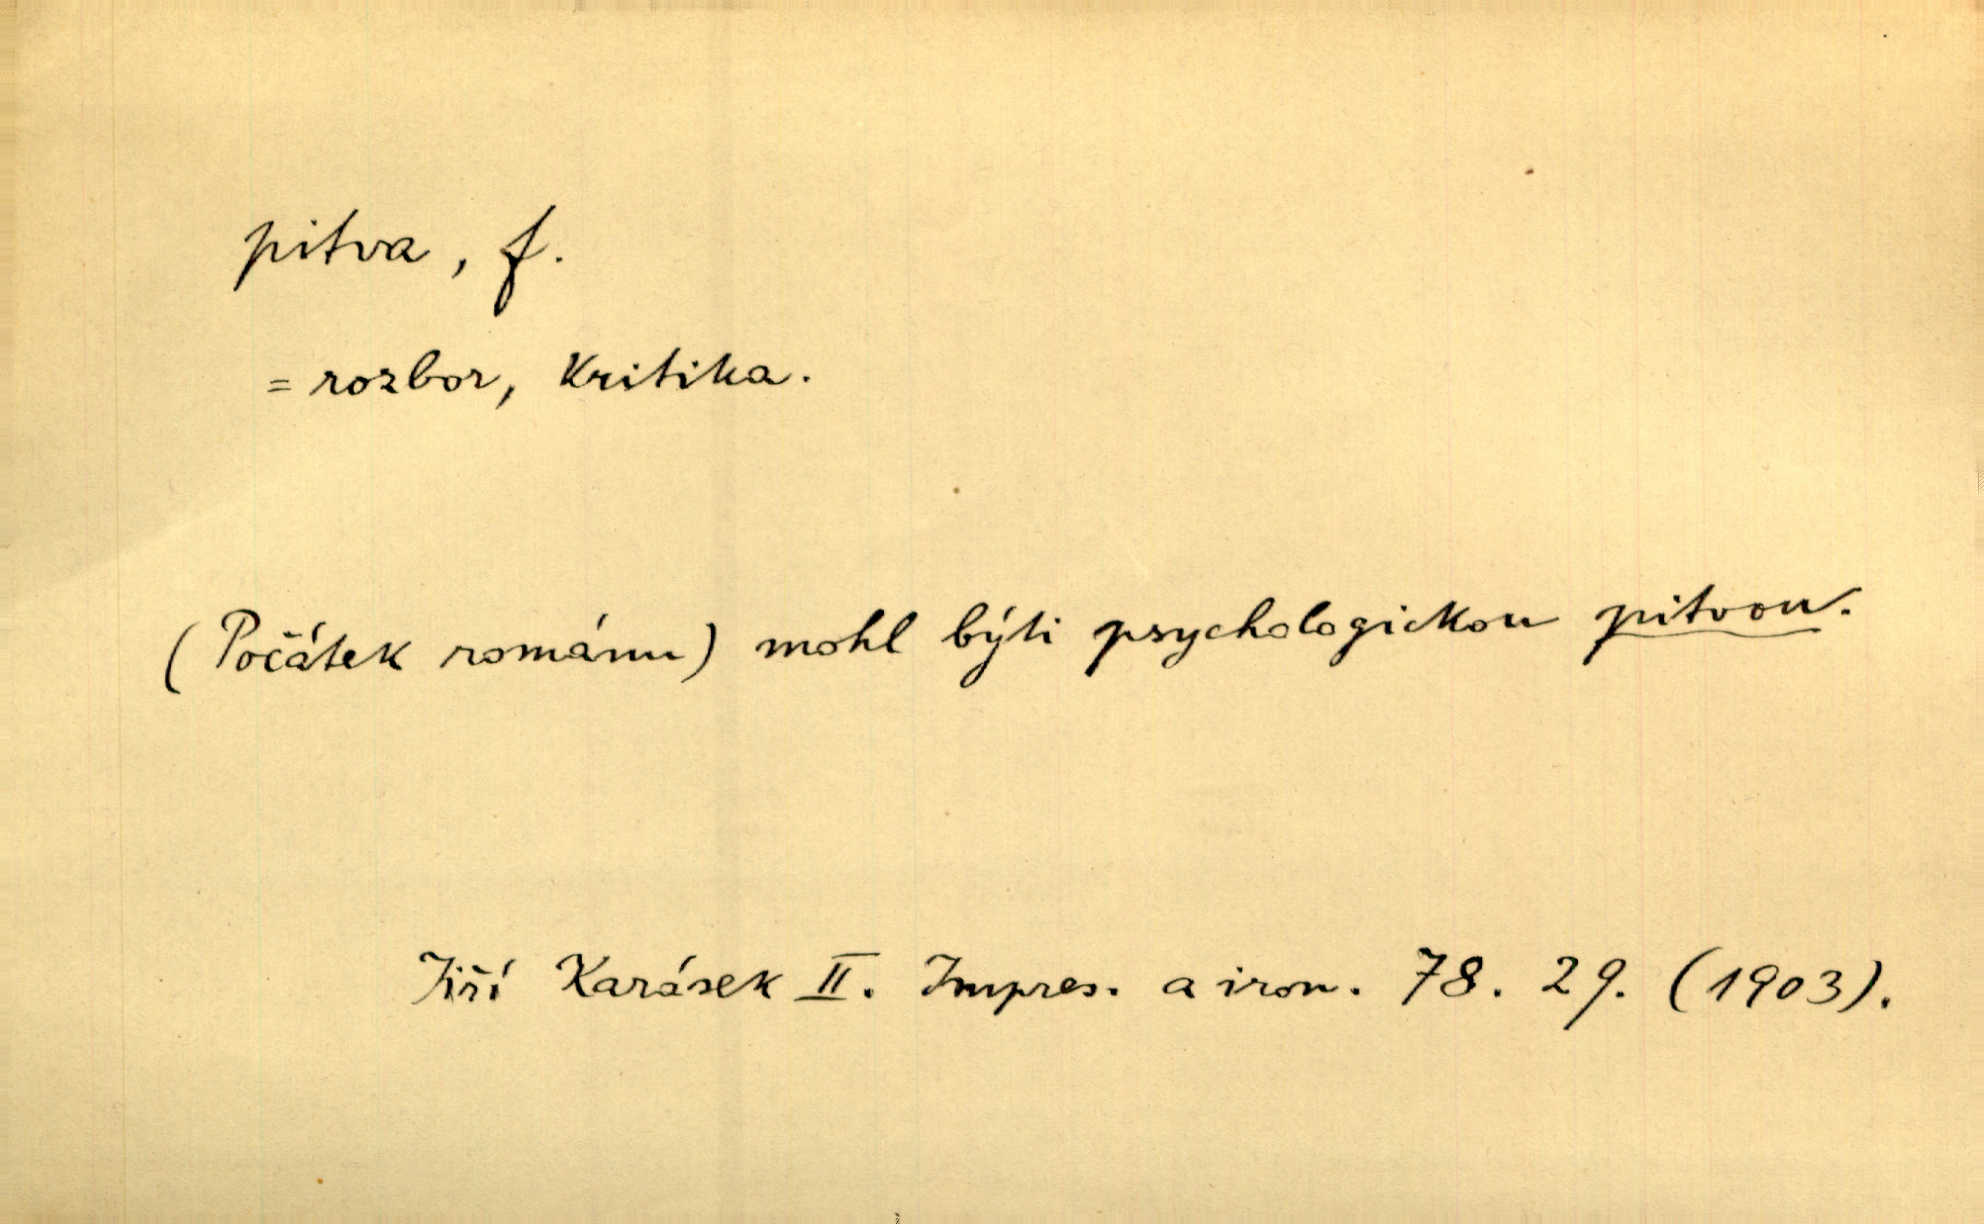 pitva, f.
= rozbor, kritika.
(Počátek románu) mohl býti psychologickou pitvou.
Jiří Karásek II. Impres. a iron. 78. 29. (1903).